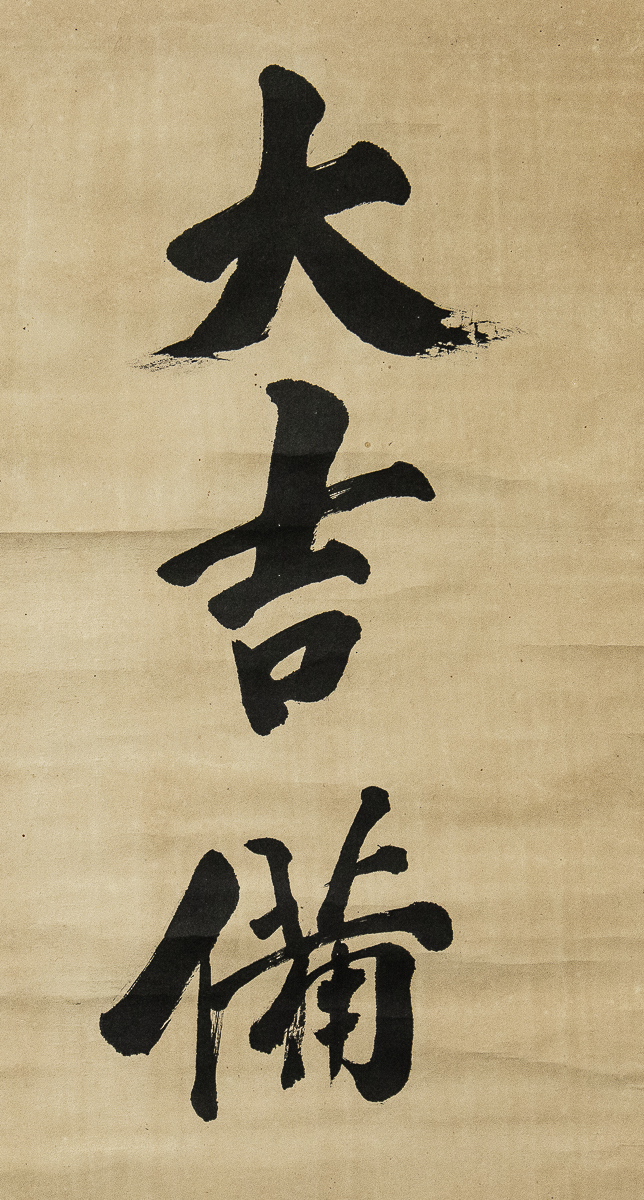 大吉備